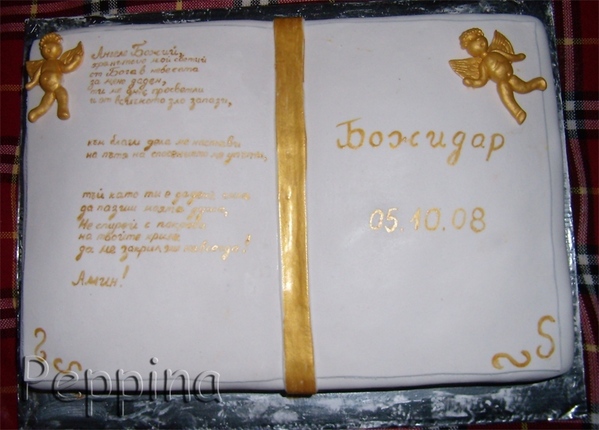 Ангел Божий,
хранителю мой святий
от Бога в небесата
за мене даден,
ти ме днес просвети
и от всякакво зло запази,
към благи дела ме настави
на пътя на спасението ме упъти,
тъй като ти е дадена сила
да пазиш моята душа,
Не спирай с
на твоите крила
да ме закриляш
Амин!
Божидар
05.10.08
Peppina